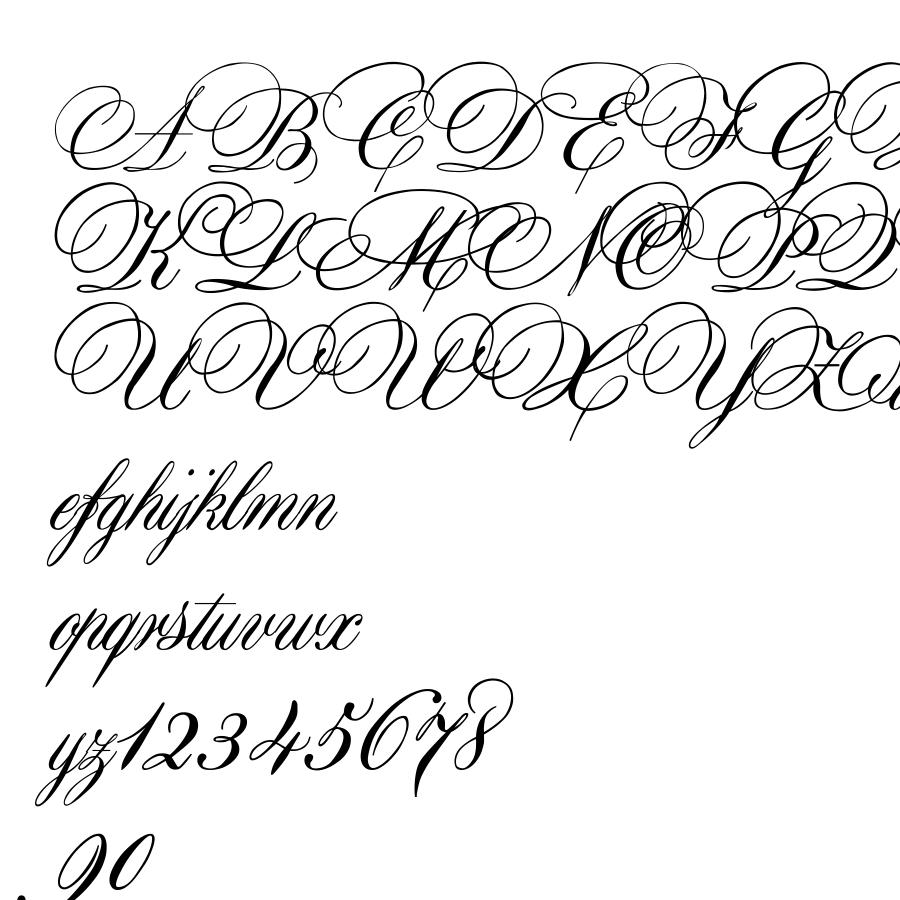 ABCDEFG
KLMNOPQ
UVWXYZ
efghijklmn
opqrstuvwx
yz12345678
90